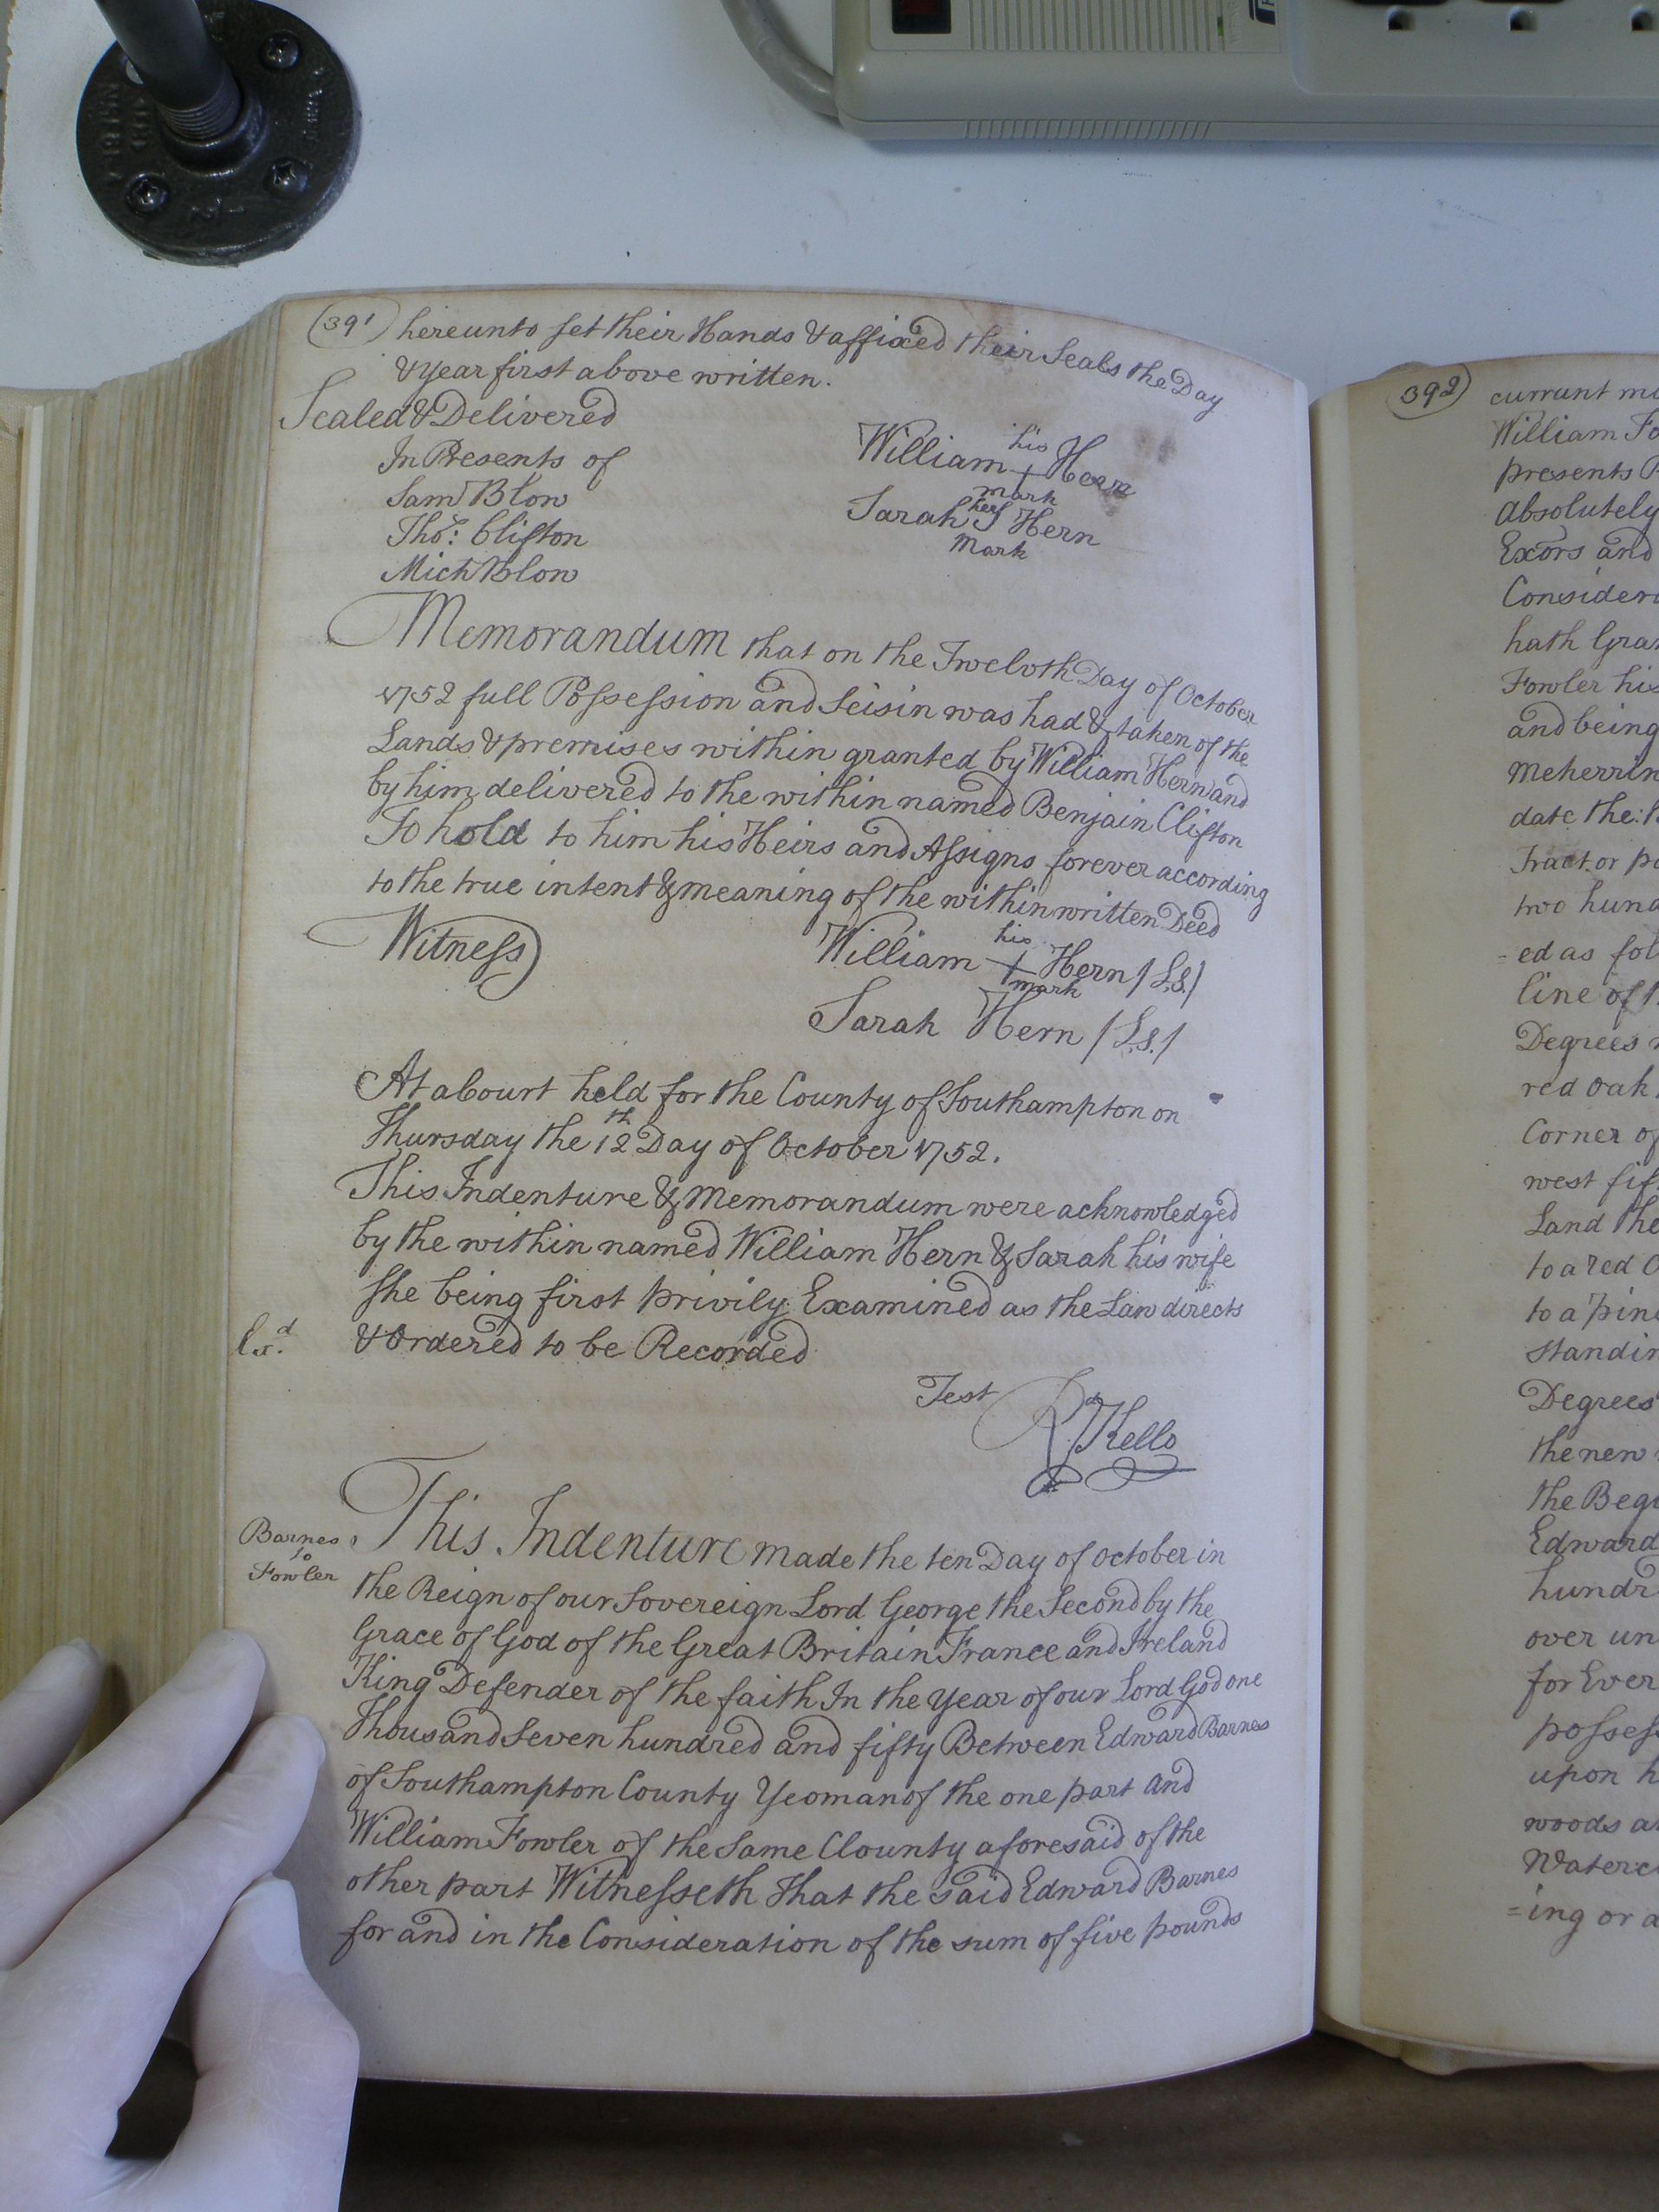 (391) hereunto set their Hands & affixed their Seals the Day
& Year first above written.
Sealed & Delivered
In Presents of
Saml Blow
Thos: Clifton
Mich Blow
William his + mark Hern
Sarah her S mark Hern
Memorandum that on the Twelvth Day of October
1752 full Possession and Seisin was had & taken of the
Lands & premises within granted by William Hern and
by him delivered to the within named Benjain Clifton
To hold to him his Heirs and Assigns forever according
to the true intent & meaning of the within written Deed
Witness
William his + mark Hern (L.S.)
Sarah Hern (L.S.)
At a Court held for the County of Southampton on
Thursday the 12th Day of October 1752.
This Indenture & Memorandum were acknowledged
by the within named William Hern & Sarah his wife
She being first privily Examined as the Law directs
& Ordered to be Recorded
Exd.
Test
Rd Kello
Barnes
to
Fowler
This Indenture made the ten Day of October in
the Reign of our Sovereign Lord George the Second by the
Grace of God of the Great Britain France and Ireland
King Defender of the faith In the Year of our Lord God one
Thousand Seven hundred and fifty Between Edward Barnes
of Southampton County Yeoman of the one part and
William Fowler of the Same Clounty aforesaid of the
other part Witnesseth That the said Edward Barnes
for and in the Consideration of the sum of five pounds
(392) currant mo
William Fo
presents
Absolutely
Exors and
Consider
hath Gra
Fowler his
and being
Meherrin
date the
Tract or pa
two hund
=ed as fol
line of
Degrees
red Oak
Corner of
west fif
Land the
to a red O
to a pine
Standin
Degrees
the new
the Begi
Edward
hundr
over un
for Ever
possess
upon h
woods a
Waterc
=ing or a